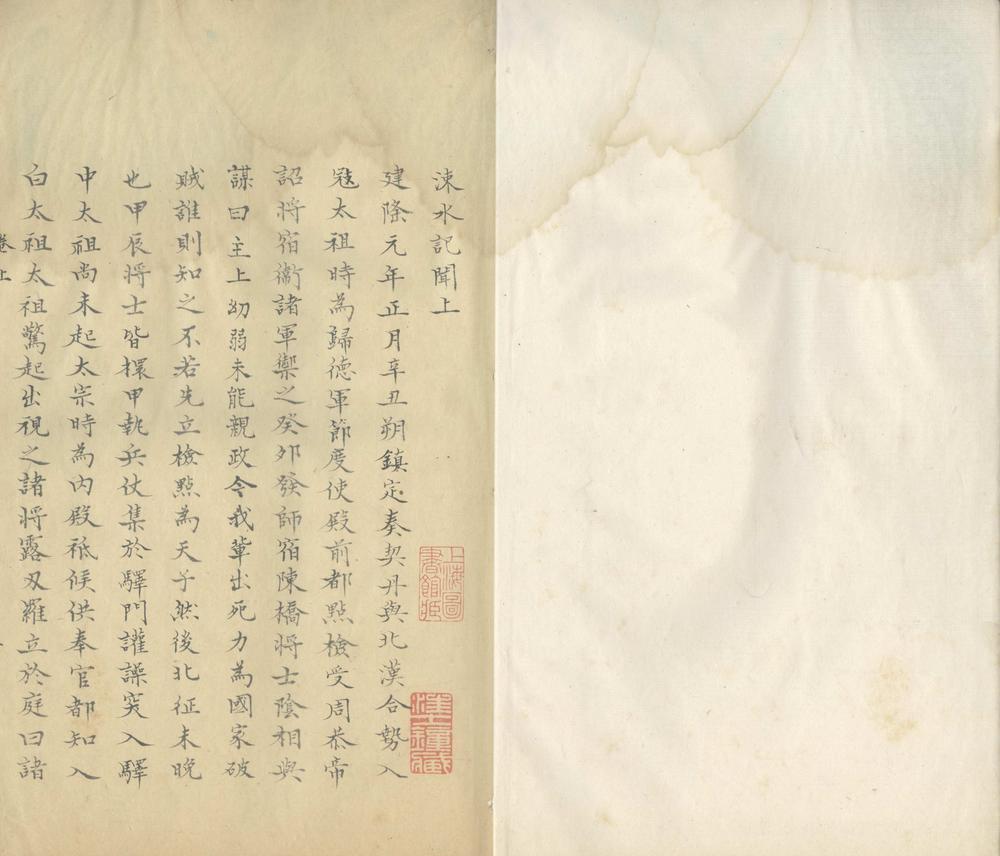 涑水記聞上
建隆元年正月辛丑朔鎮定奏契丹與北漢合勢入
宼太祖時為歸徳軍節度使殿前都點檢受周恭帝
詔将宿衞諸軍禦之癸夘發師宿陳橋将士陰相與
謀曰主上㓜弱未能親政今我軰出死力為國家破
賊誰則知之不若先立檢點為天子然後北征未晚
也甲辰将士皆擐甲執兵仗集於驛門讙譟突入驛
中太祖尚未起太宗時為内殿祗候供奉官都知入
白太祖太祖驚起出視之諸将露刄羅立於庭曰諸
卷上
上海圖書館藏